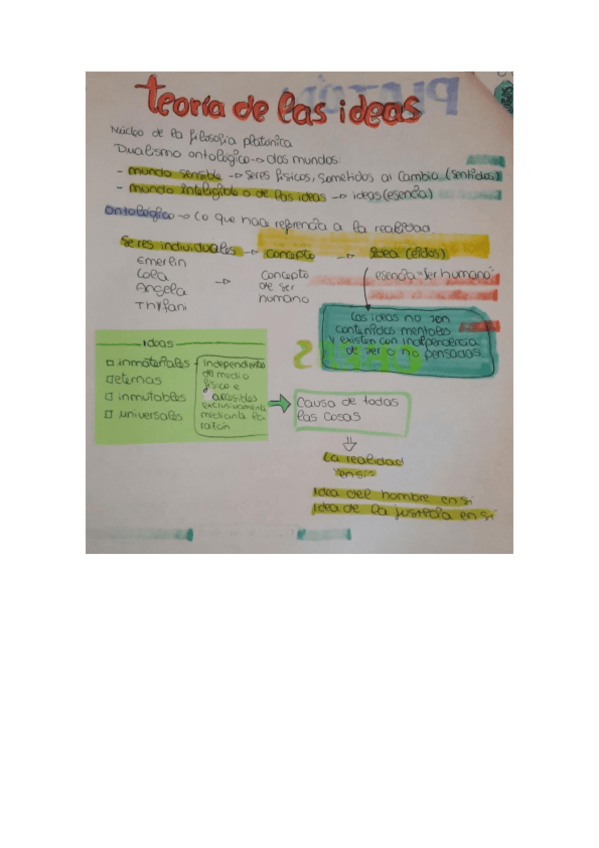 teoría de las ideas
Núcleo de la filosofía platónica
Dualismo ontológico -> dos mundos:
- mundo sensible -> seres físicos, sometidos al cambio (sentidos)
- mundo inteligible o de las ideas -> ideas (esencia)
Ontológico -> lo que hace referencia a la realidad
Seres individuales -> concepto -> Idea (eîdos)
Emerlin
Lola
Angela
Thyfani
-> concepto
de ser
humano
esencia "ser humano"
Las ideas no son
contenidos mentales
y existen con independencia
de ser o no pensadas
Ideas
inmateriales
eternas
inmutables
universales
independiente
de medio
físico e
accesibles
exclusivamente
mediante la
razón
causa de todas
las cosas
La realidad
en sí
Idea del hombre en sí
Idea de la justicia en sí
PLATÓN